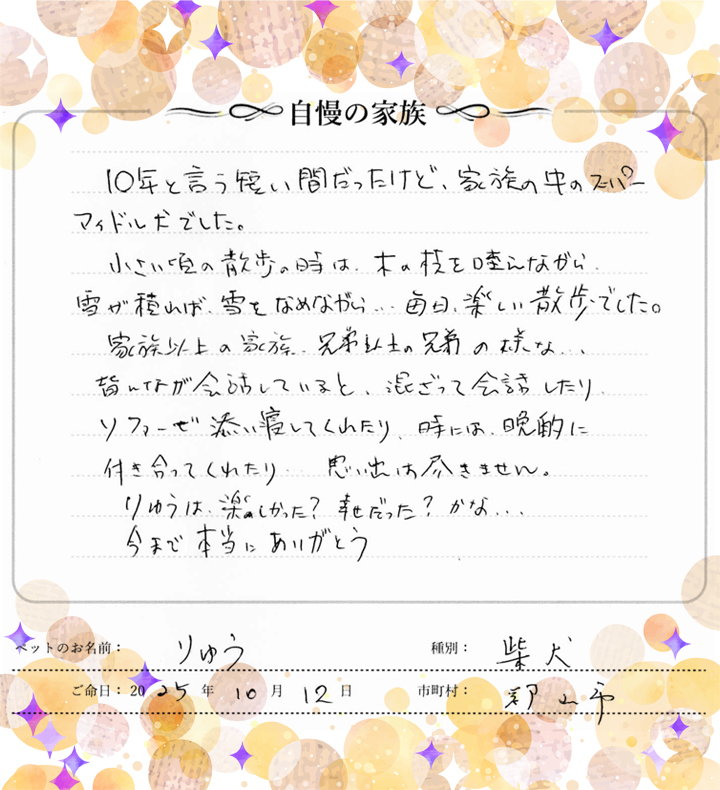 自慢の家族
10年と言う短い間だったけど、家族の中のスーパー
アイドル犬でした。
小さい頃の散歩の時は、木の枝を咥えながら、
雪が積れば、雪をなめながら… 毎日、楽しい散歩でした。
家族以上の家族、兄弟以上の兄弟の様な…
皆んなが会話していると、混ざって会話したり、
ソファーで添い寝してくれたり、時には、晩酌に
付き合ってくれたり… 思い出は尽きません。
りゅうは、楽しかった? 幸せだった? かな…
今まで本当にありがとう
ペットのお名前: りゅう 種別: 柴犬
ご命日: 2025年 10月 12日 市町村: 郡山市